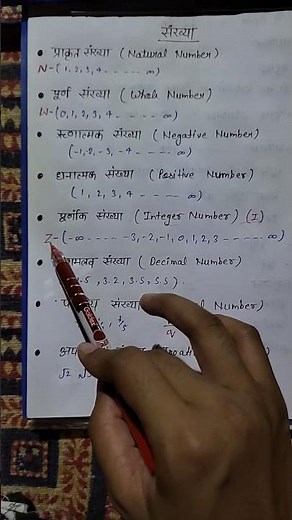 संख्या
• प्राकृत संख्या ( Natural Number )
N-(1, 2, 3, 4 - - - - - ∞)
• पूर्ण संख्या ( Whole Number )
W-(0, 1, 2, 3, 4 - - - - - ∞)
• ऋणात्मक संख्या ( Negative Number )
(-1, -2, -3, -4 - - - - ∞)
• धनात्मक संख्या ( Positive Number )
( 1, 2, 3, 4 - - - - - ∞)
• पूर्णांक संख्या ( Integer Number ) (I)
Z-(-∞ - - - - - -3, -2, -1, 0, 1, 2, 3 - - - - - ∞)
संख्या ( Decimal Number )
.5 , 3.2, 3.5, 5.5 ).
संख्या
√2